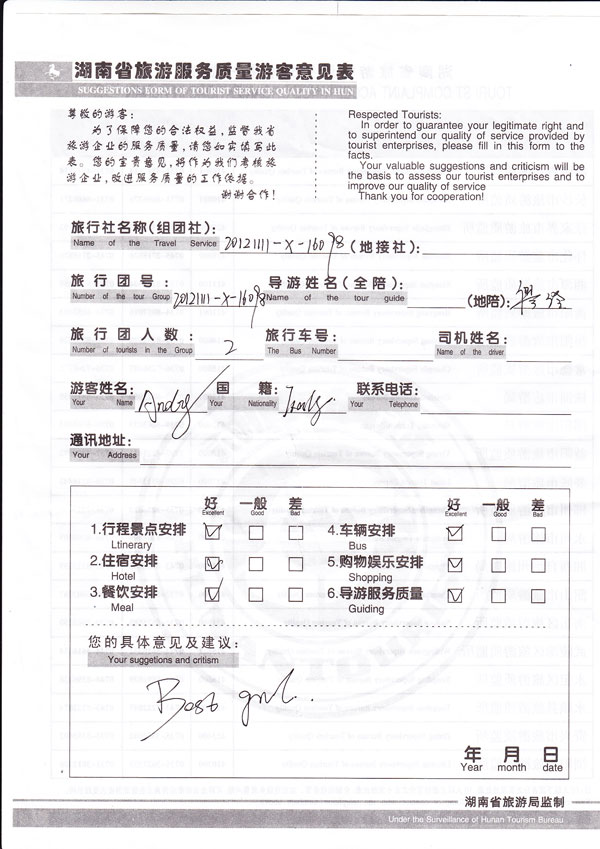 湖南省旅游服务质量游客意见表
SUGGESTIONS FORM OF TOURIST SERVICE QUALITY IN HUN
尊敬的游客:
为了保障您的合法权益,监督我省
旅游企业的服务质量,请您如实填写此
表。您的宝贵意见,将作为我们考核旅
游企业,改进服务质量的工作依据。
谢谢合作!
Respected Tourists:
In order to guarantee your legitimate right and
to superintend our quality of service provided by
tourist enterprises, please fill in this form to the
facts.
Your valuable suggestions and criticism will be
the basis to assess our tourist enterprises and to
improve our quality of service
Thank you for cooperation!
旅行社名称(组团社): 20121111-X-16098 (地接社):
Name of the Travel Service
旅行团号: 20121111-X-16098 导游姓名(全陪): (地陪):
Number of the tour Group Name of the tour guide
旅行团人数: 2 旅行车号: 司机姓名:
Number of tourists in the Group The Bus Number Name of the driver
游客姓名: Andrey 国籍: 联系电话:
Your Name Your Nationality Your Telephone
通讯地址:
Your Address
好 一般 差 好 一般 差
Excellent Good Bad Excellent Good Bad
1.行程景点安排 4.车辆安排
Ltinerary Bus
2.住宿安排 5.购物娱乐安排
Hotel Shopping
3.餐饮安排 6.导游服务质量
Meal Guiding
您的具体意见及建议:
Your suggetions and critism
Best
年 月 日
Year month date
湖南省旅游局监制
Under the Surveillance of Hunan Tourism Bureau